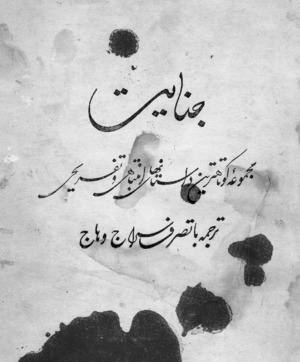 جنایت
مجموعهٔ کوتاهترین داستانهای انتباهی و تفریحی
ترجمه با تصرف سراج وهاج